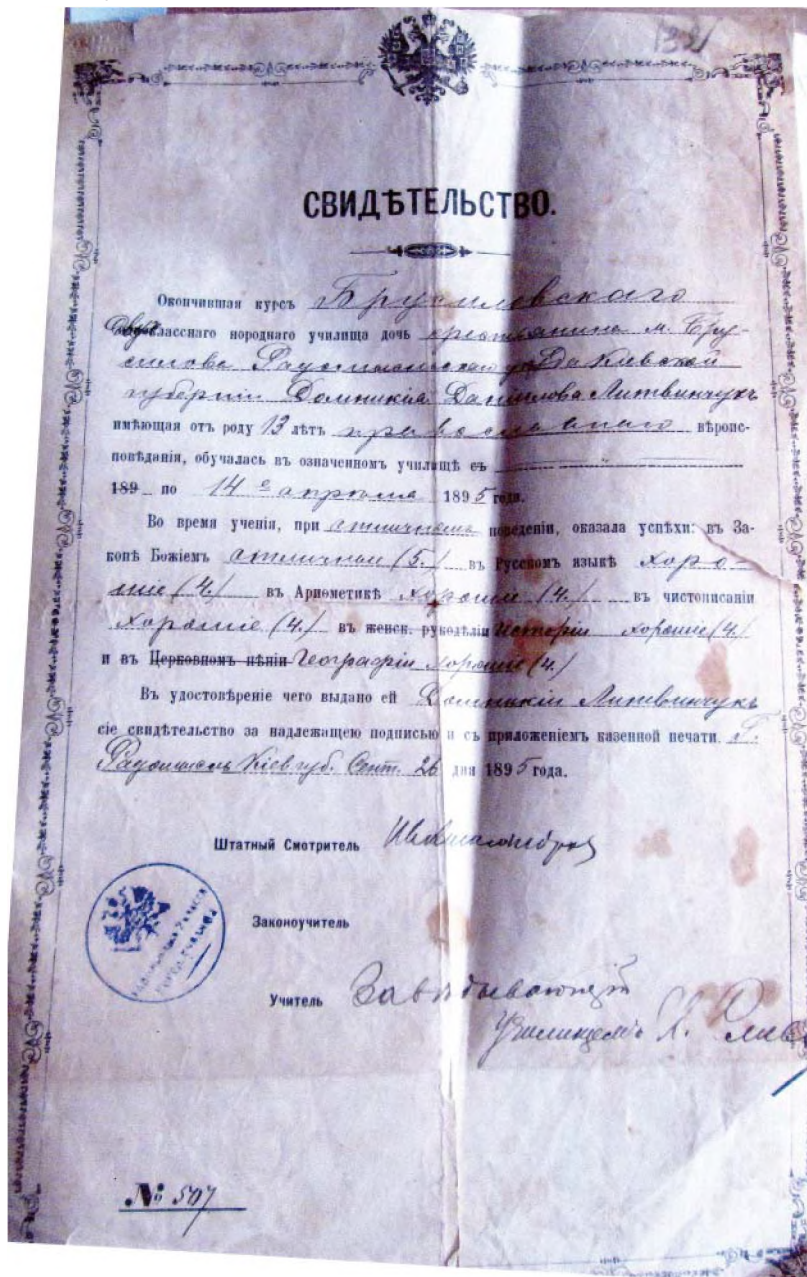 132
СВИДѢТЕЛЬСТВО.
Окончившая курсъ Брусиловскаго
Двухкласснаго народнаго училища дочь крестьянина м. Бру-
силова Радомысльскаго уѣзда Кіевской
губерніи Домникія Данилова Литвинчукъ
имѣющая отъ роду 13 лѣтъ православнаго вѣроис-
повѣданія, обучалась въ означенномъ училищѣ съ
189 по 14 е апрѣля 1895 года.
Во время ученія, при отличномъ поведеніи, оказала успѣхи: въ За-
конѣ Божіемъ отличные (5.) въ Русскомъ языкѣ хоро-
шіе (4.) въ Ариѳметикѣ хорошіе (4.) въ чистописаніи
хорошіе (4.) въ женск. рукодѣліи Исторіи хорошіе (4.)
и въ Церковномъ пѣніи Географіи хорошіе (4.)
Въ удостовѣреніе чего выдано ей Домникіи Литвинчукъ
сіе свидѣтельство за надлежащею подписью и съ приложеніемъ казенной печати. Г.
Радомысль Кіев губ. Сент. 26 дня 1895 года.
Штатный Смотритель
Законоучитель
Учитель Завѣдывающій
Училищемъ
№ 507